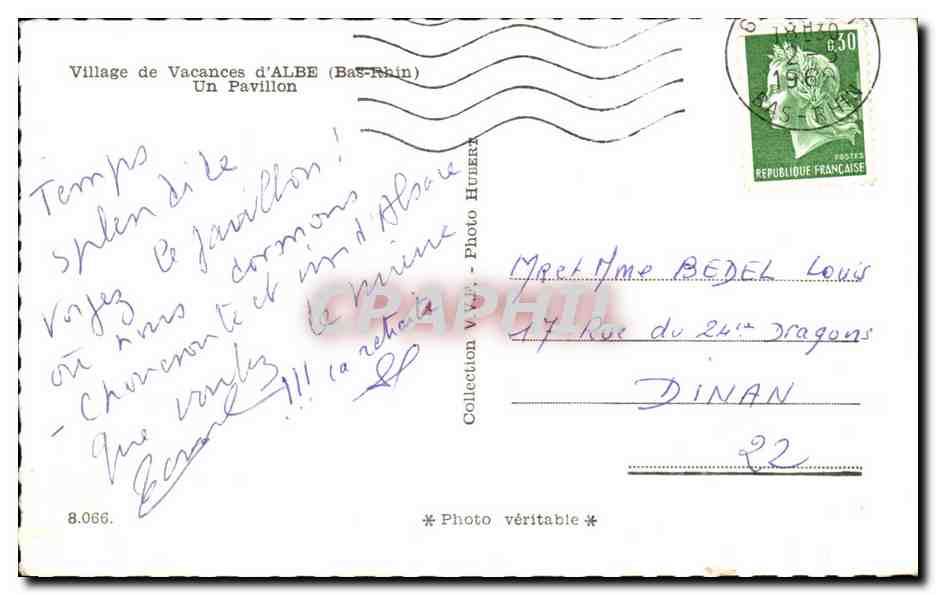 Village de Vacances d'ALBE (Bas-Rhin)
Un Pavillon
Temps
splendide
Voyez le pavillon !
où nous dormions
- choucroute et vin d'Alsace
que voulez le mieux
!!! la retraite
Collection V.V.F. - Photo HUBERT
18H30
196
BAS-RHIN
0,30
POSTES
REPUBLIQUE FRANÇAISE
Mr et Mme BEDEL Louis
17 Rue du 24ème Dragons
DINAN
22
CPAPHIL
8.066.
* Photo véritable *